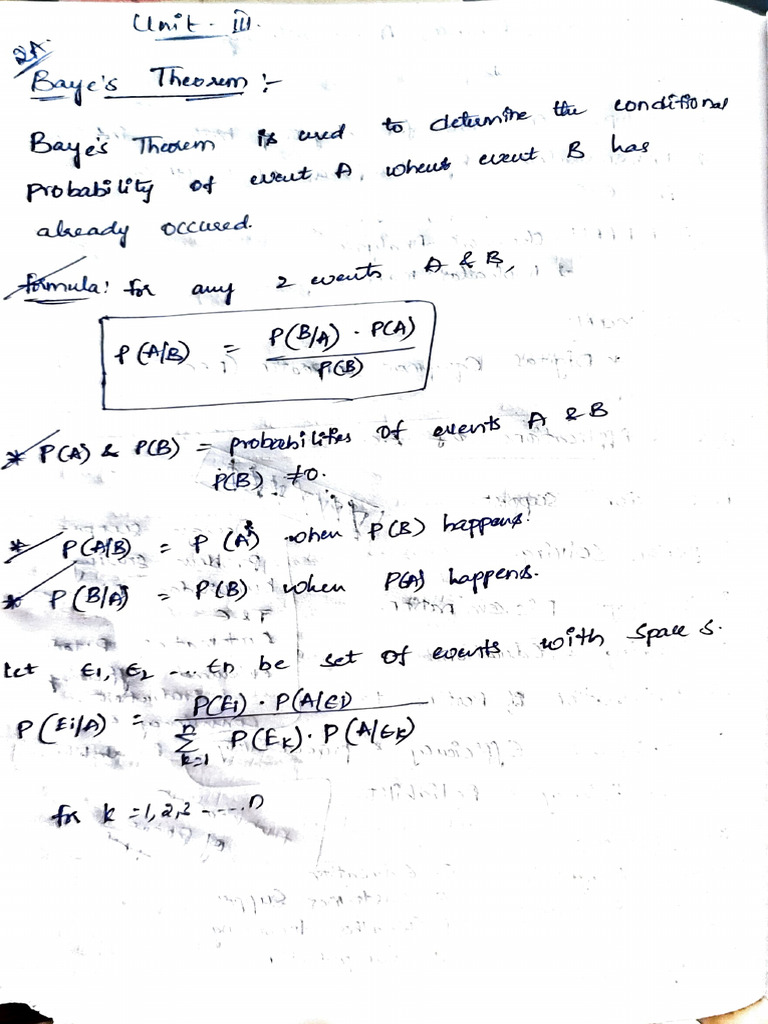 Unit - III.
2A.
Baye's Theorem :-
Baye's Theorem is used to determine the conditional
probability of event A, whens event B has
already occured.
formula: for any 2 events A & B,
P(A/B) = P(B/A) · P(A) / P(B)
* P(A) & P(B) = probabilities of events A & B
P(B) ≠ 0.
* P(A/B) = P(A) when P(B) happens.
* P(B/A) = P(B) when P(A) happens.
Let E1, E2 ... En be set of events with space S.
P(Ei/A) = P(Ei) · P(A/Ei) / n Σ k=1 P(Ek) · P(A/Ek)
for k = 1,2,3 ..... n